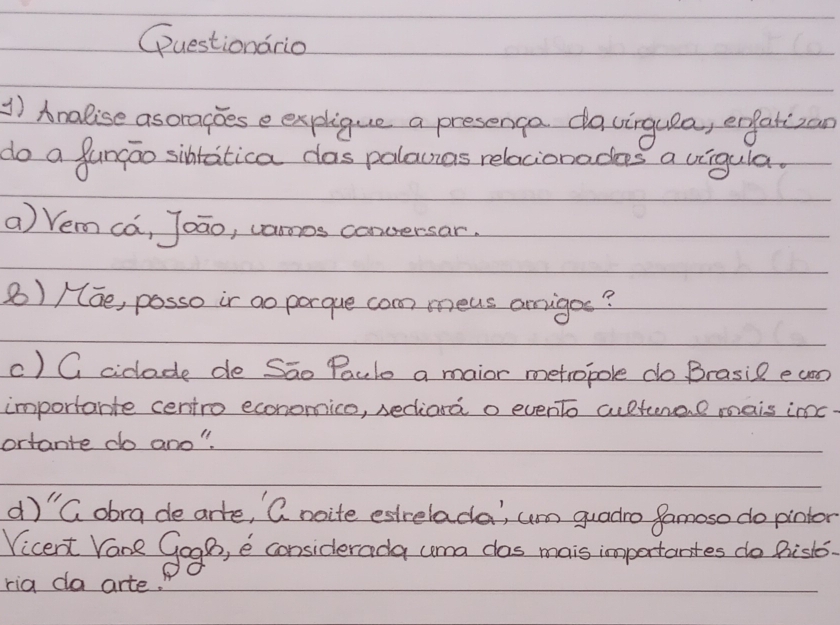 Questionário
1) Analise as orações e explique a presença da vírgula, enfatizan
do a função sintática das palavras relacionadas a vírgula.
a) Vem cá, João, vamos conversar.
b) Mãe, posso ir ao porque com meus amigos?
c) A cidade de São Paulo a maior metrópole do Brasil e um
importante centro economico, sediará o evento cultural mais imc-
ortante do ano".
d) "A obra de arte, 'A noite estrelada', um quadro famoso do pintor
Vicent Vane Gogh, é considerada uma das mais importantes da histó-
ria da arte."